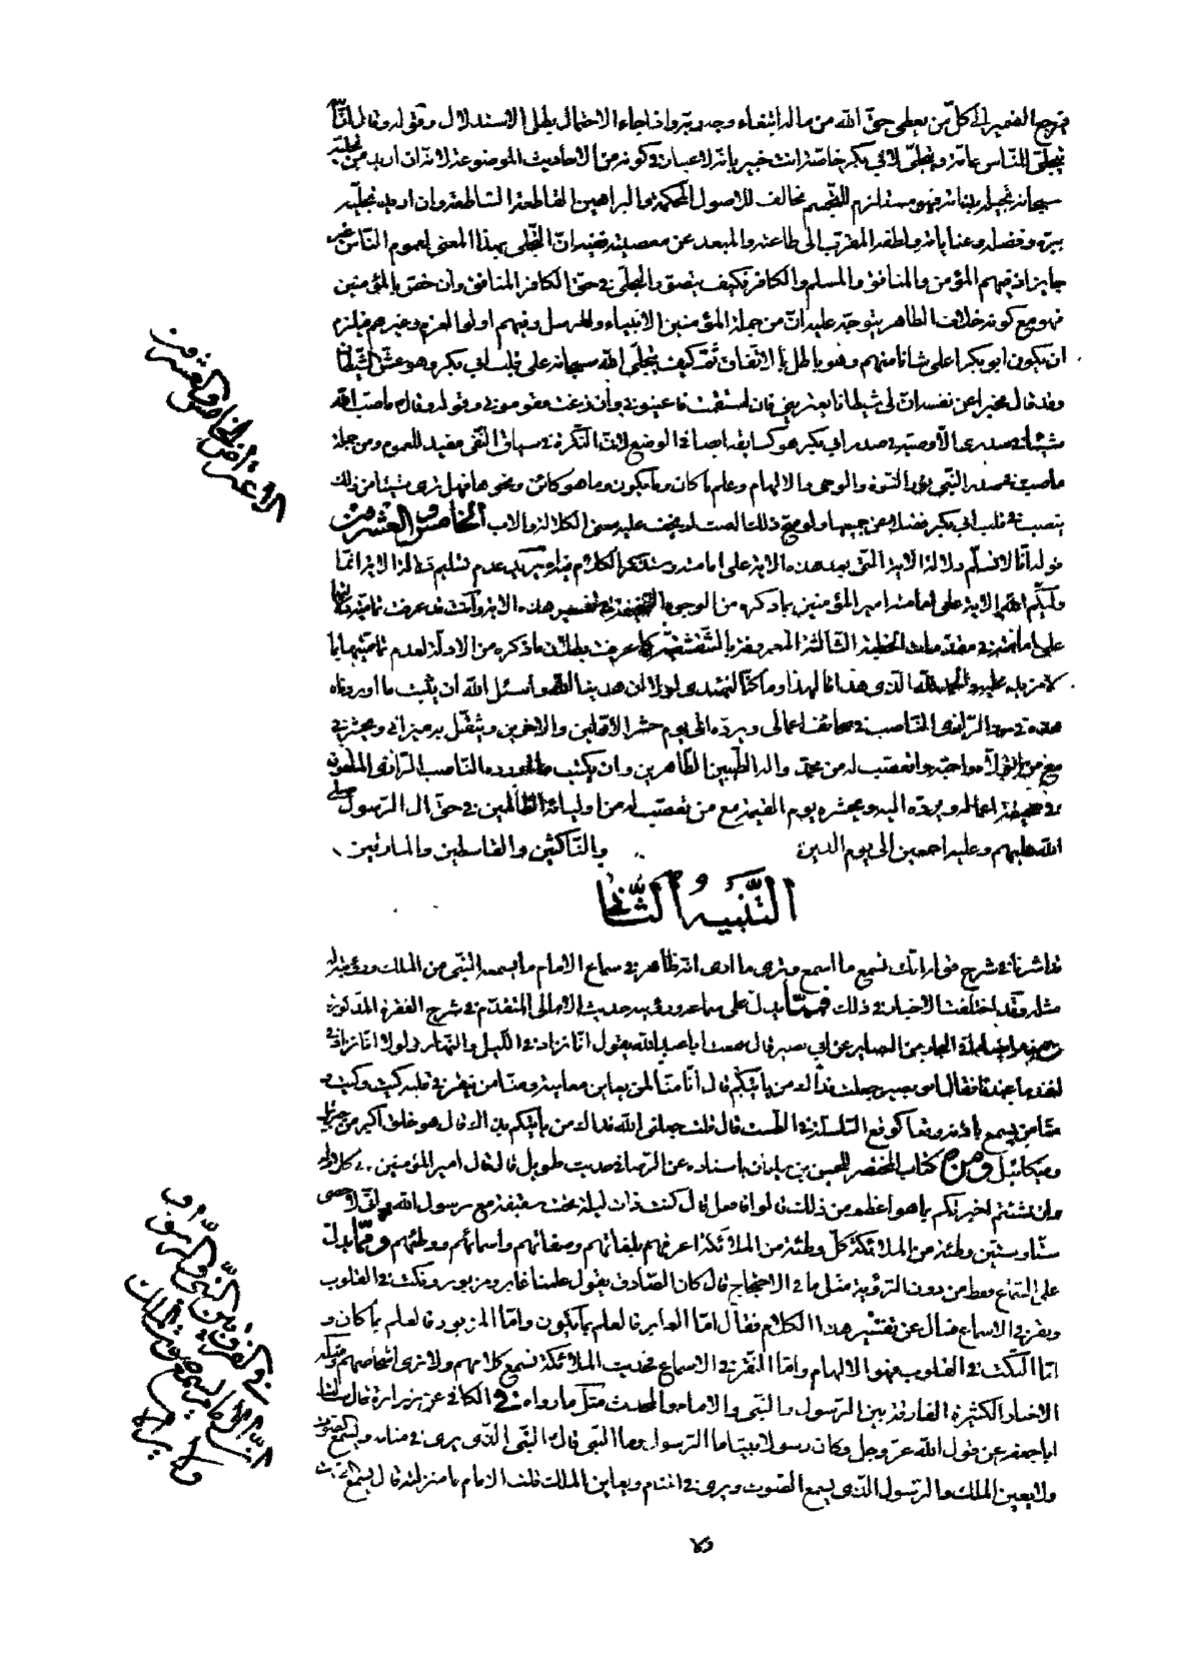 فيرجع الضمير الى كل من يعطى حق الله من ماله ابتغاء وجه ربه واذا جاء الاحتمال بطل الاستدلال وقوله وقال ان الله
يتجلى للناس عامة ويتجلى لابى بكر خاصة انت خبير بانه لا عيان فى كونه من الاحاديث الموضوعة لانه ان اريد من تجليه
سبحانه تجليه بذاته فهو مستلزم للتجسم مخالف للاصول المحكمة والبراهين القاطعة الساطعة وان اريد تجليه
ببره وفضله وعناياته ولطفه المقرب الى طاعته والمبعد عن معصيته ففيه ان التجلى بهذا المعنى لعموم الناس غير
جايز اذ فيهم المؤمن والمنافق والمسلم والكافر فكيف يتصور التجلى فى حق الكافر المنافق وان خص بالمؤمنين
فهو مع كونه خلاف الظاهر يتوجه عليه ان من جملة المؤمنين الانبياء والرسل وفيهم اولوا العزم وغيرهم فيلزم
ان يكون ابو بكر اعلى شانا منهم وهو باطل بالاتفاق ثم كيف يتجلى الله سبحانه على قلب ابى بكر وهو عش الشيطان
وقد قال مخبرا عن نفسه ان لى شيطانا يعترينى فان استقمت فاعينونى وان زغت فقومونى وقوله وقال ما صب الله
شيئا فى صدرى الا وصبه فى صدر ابى بكر هو كسابقه ايضا فى الوضع لان النكرة فى سياق النفى مفيد للعموم ومن جملة
ما صب فى صدر النبى نور النبوة والوحى والالهام وعلم ما كان وما يكون وما هو كائن ونحوها فهل ترى شيئا من ذلك
ينصب فى قلب ابى بكر فضلا عن جميعها ولو صح ذلك الصب لم يخف عليه معنى الكلالة والاب الخامس والعشرون
قوله انا لا نسلم دلالة الآية التى بعد هذه الآية على امامته وسنذكر الكلام فيه يريد به عدم تسليم دلالة آية انما
وليكم الله الآية على امامة امير المؤمنين بما ذكره من الوجوه السخيفة فى تفسير هذه الآية وانت قد عرفت تمامية دلالتها
على امامته فى مقدمات الخطبة الثالثة المعروفة بالشقشقية كما عرفت بطلان ما ذكره من الادلة لعدم تماميتها بما
لا مزيد عليه والحمد لله الذى هدانا لهذا وما كنا لنهتدى لولا ان هدينا الله واسئل الله ان يثبت ما اوردناه
هذه فى رد الرازى الناصب فى صحائف اعمالى ويرده الى يوم حشر الاولين والآخرين ويثقل به ميزانى ويحشرنى
مع من اتولاه واحبه واتعصب له من محمد وآله الطيبين الطاهرين وان يكتب ما اورده الناصب الرازى الملعون
فى صحيفة اعماله ويرده اليه ويحشره يوم القيمة مع من تعصب له من اوليائه الظالمين فى حق آل الرسول صلى
الله عليهم وعليه اجمعين الى يوم الدين والناكثين والقاسطين والمارقين
التنبيه الثانى
قد اشرنا فى شرح قوله انك تسمع ما اسمع وترى ما ارى انه ظاهر فى سماع الامام ما يسمعه النبى من الملك ورؤيته له
مثله وقد اختلفت الاخبار فى ذلك فمما يدل على سماعه ورؤيته حديث الامالى المتقدم فى شرح الفقرة المذكورة
عن ابى بصير قال سمعت ابا عبد الله يقول انا نزاد فى الليل والنهار ولولا انا نزاد
لنفد ما عندنا فقال ابو بصير جعلت فداك من ياتيكم قال ان منا لمن يعاين معاينة ومنا من ينقر فى قلبه كيت وكيت و
منا من يسمع باذنه وقعا كوقع السلسلة فى الطست قال قلت جعلنى الله فداك من ياتيكم بذلك قال هو خلق اكبر من جبرئيل
وميكائيل ومن كتاب المختصر للحسن بن سليمان باسناده عن الرضا فى حديث طويل قال قال امير المؤمنين
وان شئتم اخبرتكم بما هو اعظم من ذلك قالوا فافعل قال كنت ذات ليلة تحت سقيفة مع رسول الله وانى لاحصى
ستا وستين وطئة من الملائكة كل وطئة من الملائكة اعرفهم بلغاتهم وصفاتهم واسمائهم ووطئهم ومما يدل
على السماع فقط من دون الرؤية مثل ما فى الاحتجاج قال كان الصادق يقول علمنا غابر ومزبور ونكت فى القلوب
ونقر فى الاسماع فسئل عن تفسير هذا الكلام فقال اما الغابر فالعلم بما يكون واما المزبور فالعلم بما كان و
اما النكت فى القلوب فهو الالهام واما النقر فى الاسماع فحديث الملائكة نسمع كلامهم ولا نرى اشخاصهم ومثله
الاخبار الكثيرة الفارقة بين الرسول والنبى والامام والمحدث مثل ما رواه فى الكافى عن زرارة قال سئلت
ابا جعفر عن قول الله عز وجل وكان رسولا نبيا ما الرسول وما النبى قال النبى الذى يرى فى منامه ويسمع الصوت
ولا يعاين الملك والرسول الذى يسمع الصوت ويرى فى المنام ويعاين الملك قلت الامام ما منزلته قال يسمع الصوت
الاعتراض الخامس والعشرون